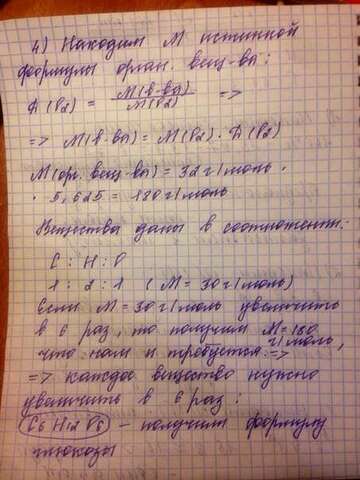 4) Находим M истинной
формулы орган. вещ-ва:
D(O2) = M(в-ва) / M(O2) =>
=> M(в-ва) = M(O2) · D(O2)
M(ор. вещ-ва) = 32 г/моль ·
· 5,625 = 180 г/моль
Вещества даны в соотношении:
C : H : O
1 : 2 : 1 (M = 30 г/моль)
Если M = 30 г/моль увеличить
в 6 раз, то получим M = 180 г/моль,
что нам и требуется =>
=> каждое вещество нужно
увеличить в 6 раз:
C6H12O6 – получили формулу
глюкозы